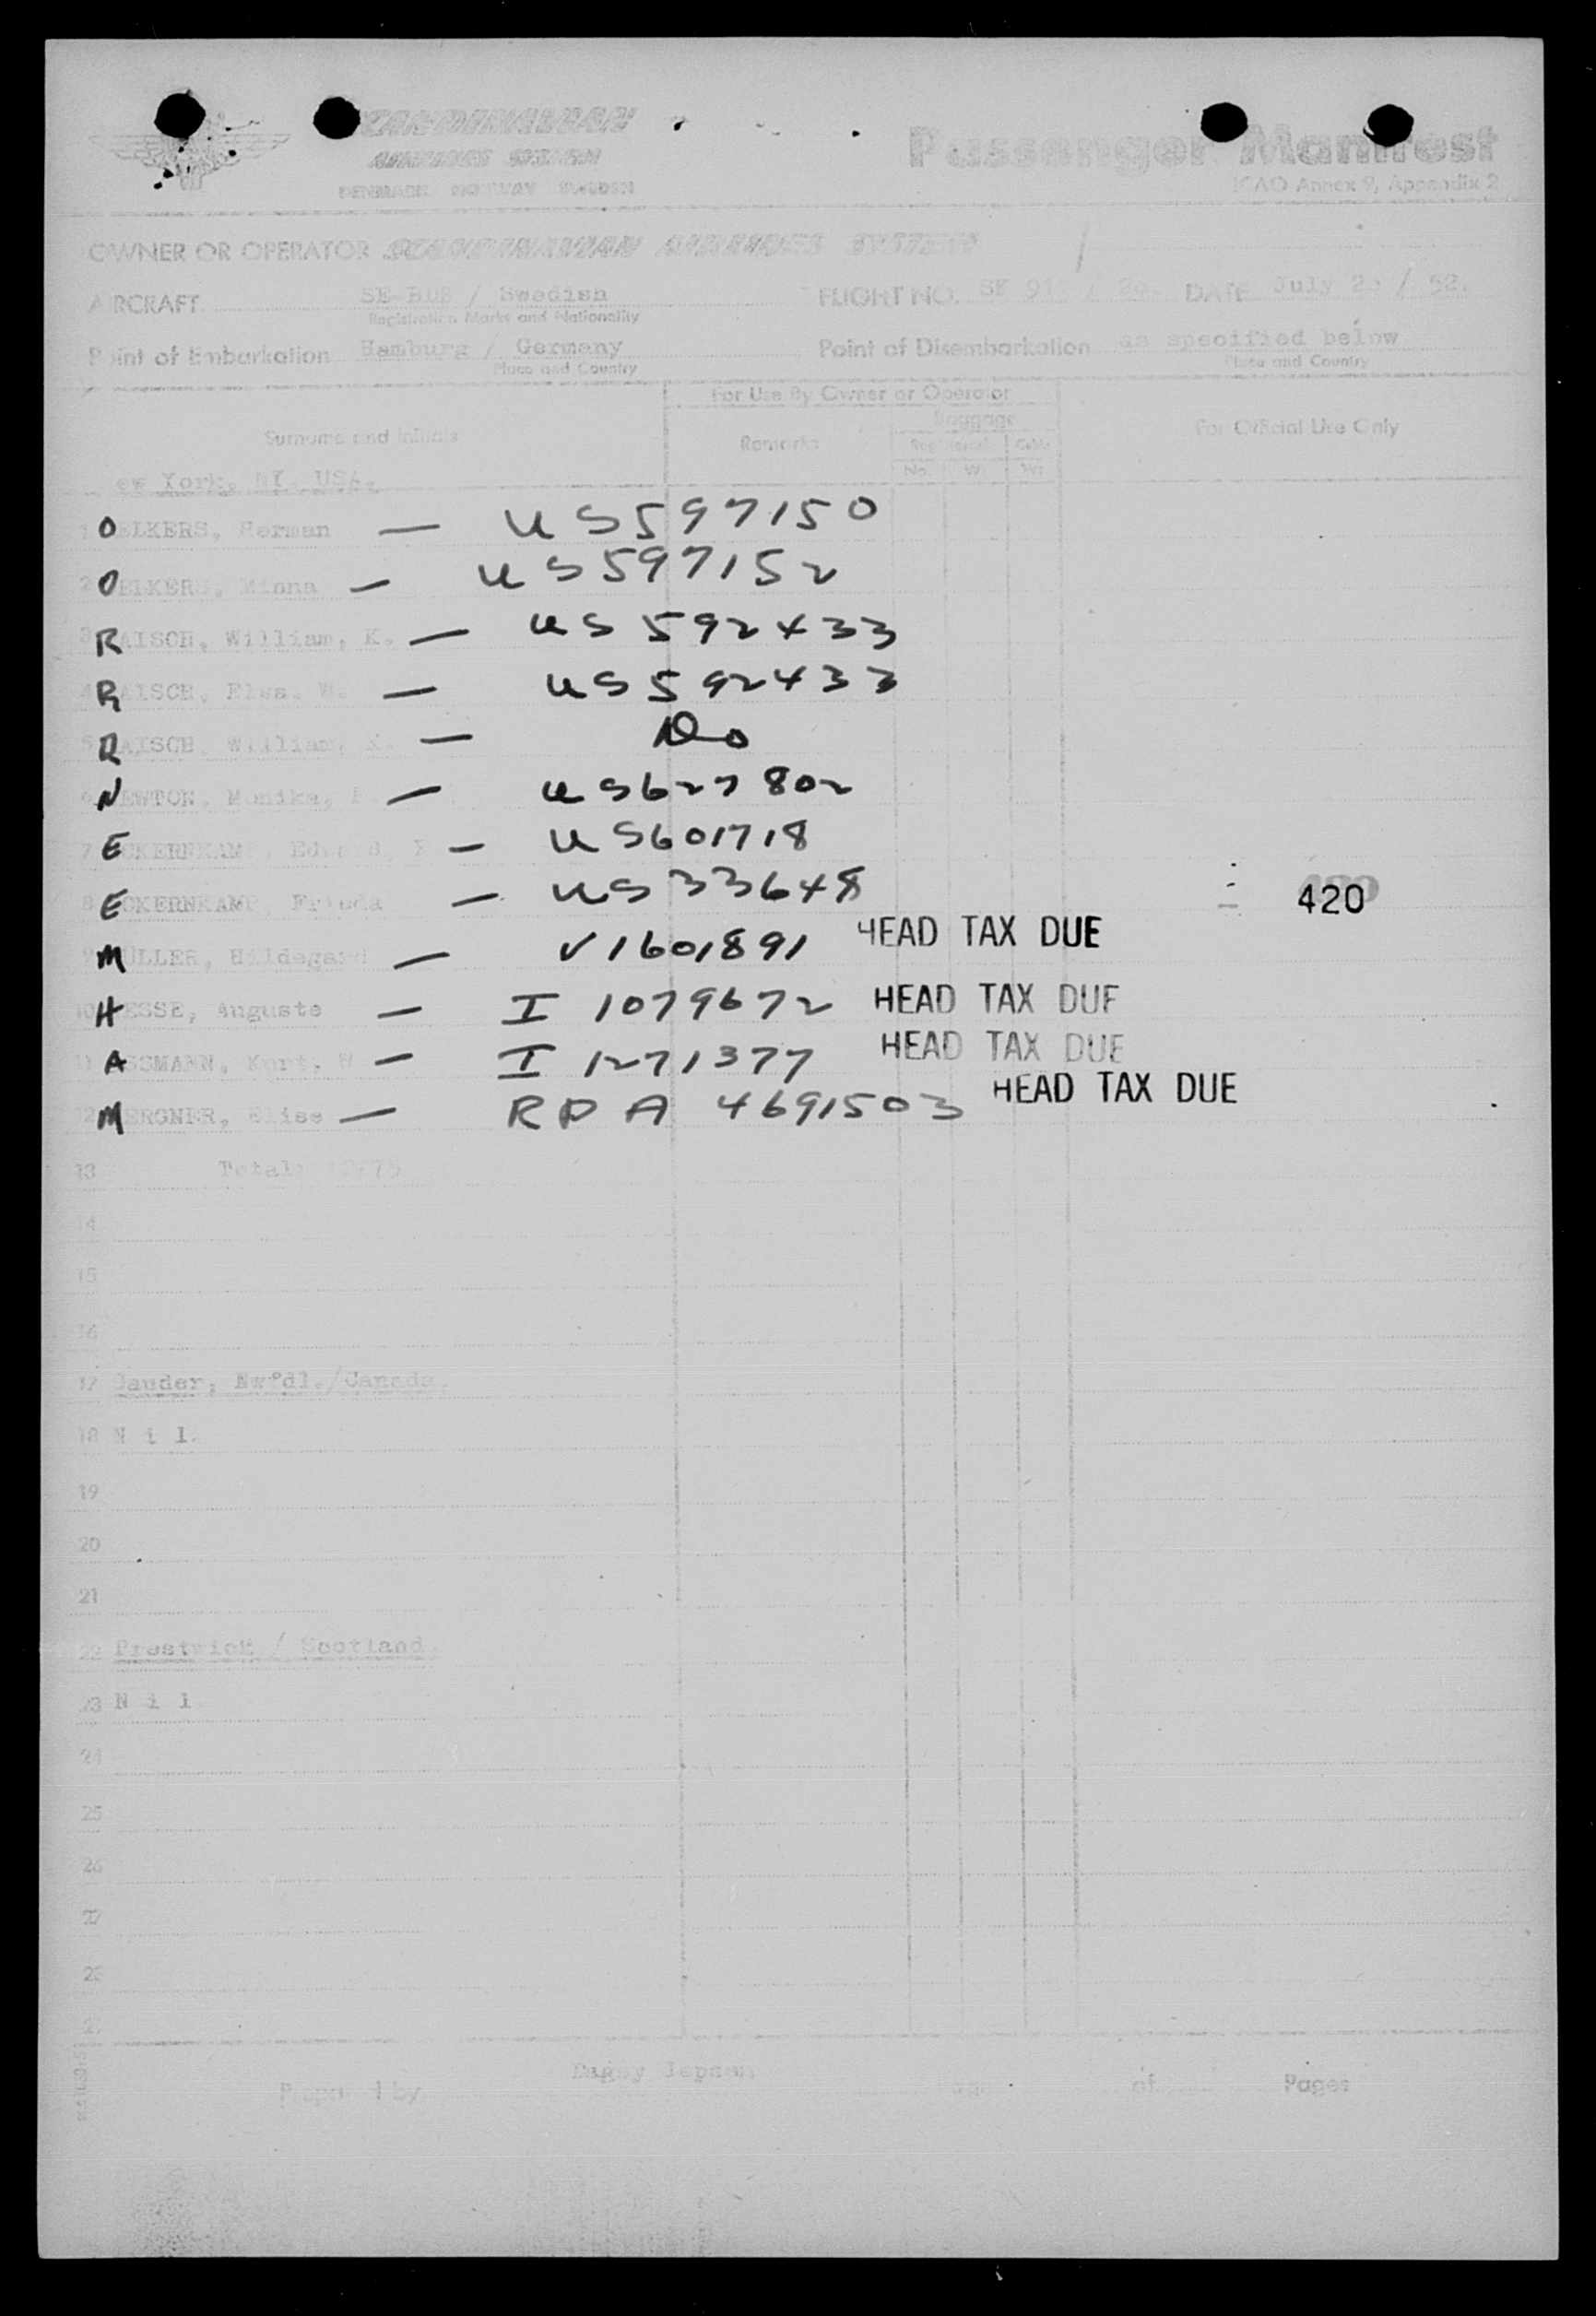 SCANDINAVIAN
AIRLINES SYSTEM
DENMARK NORWAY SWEDEN
Passenger Manifest
ICAO Annex 9, Appendix 2
OWNER OR OPERATOR SCANDINAVIAN AIRLINES SYSTEM
AIRCRAFT / Swedish FLIGHT NO. SK DATE July / 52.
Registration Marks and Nationality
Point of Embarkation Hamburg / Germany Point of Disembarkation as specified below
Place and Country Place and Country
For Use By Owner or Operator
Surname and Initials Remarks Baggage For Official Use Only
No. Wt Wt
New York, NY. USA.
1 OELKERS, Herman — US597150
2 OELKERS, Minna — US597152
3 RAISCH, William, K. — US 592433
4 RAISCH, Elsa. W. — US592433
5 RAISCH, William, K. — Do
6 NEWTON, Monika, — US627802
7 ECKERNKAMP, — US601718
8 ECKERNKAMP, Frieda — US33648
420
9 MÜLLER, Hildegard — V1601891 HEAD TAX DUE
10 HESSE, Auguste — I 1079672 HEAD TAX DUE
11 ASSMANN, Kurt, — I 1271377 HEAD TAX DUE
12 MERGNER, Elise — RPA 4691503 HEAD TAX DUE
13 Total:
14
15
16
17 Gander, Nwfdl./Canada.
18 N i l.
19
20
21
22 Prestwick / Scotland.
23 N i l
24
25
26
27
28
Prepared by of Pages